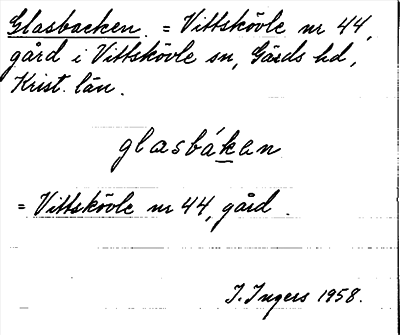 Glasbacken. = Vittskövle nr 44,
gård i Vittskövle sn, Gärds hd,
Krist. län.
glasbákan
= Vittskövle nr 44, gård.
I. Ingers 1958.